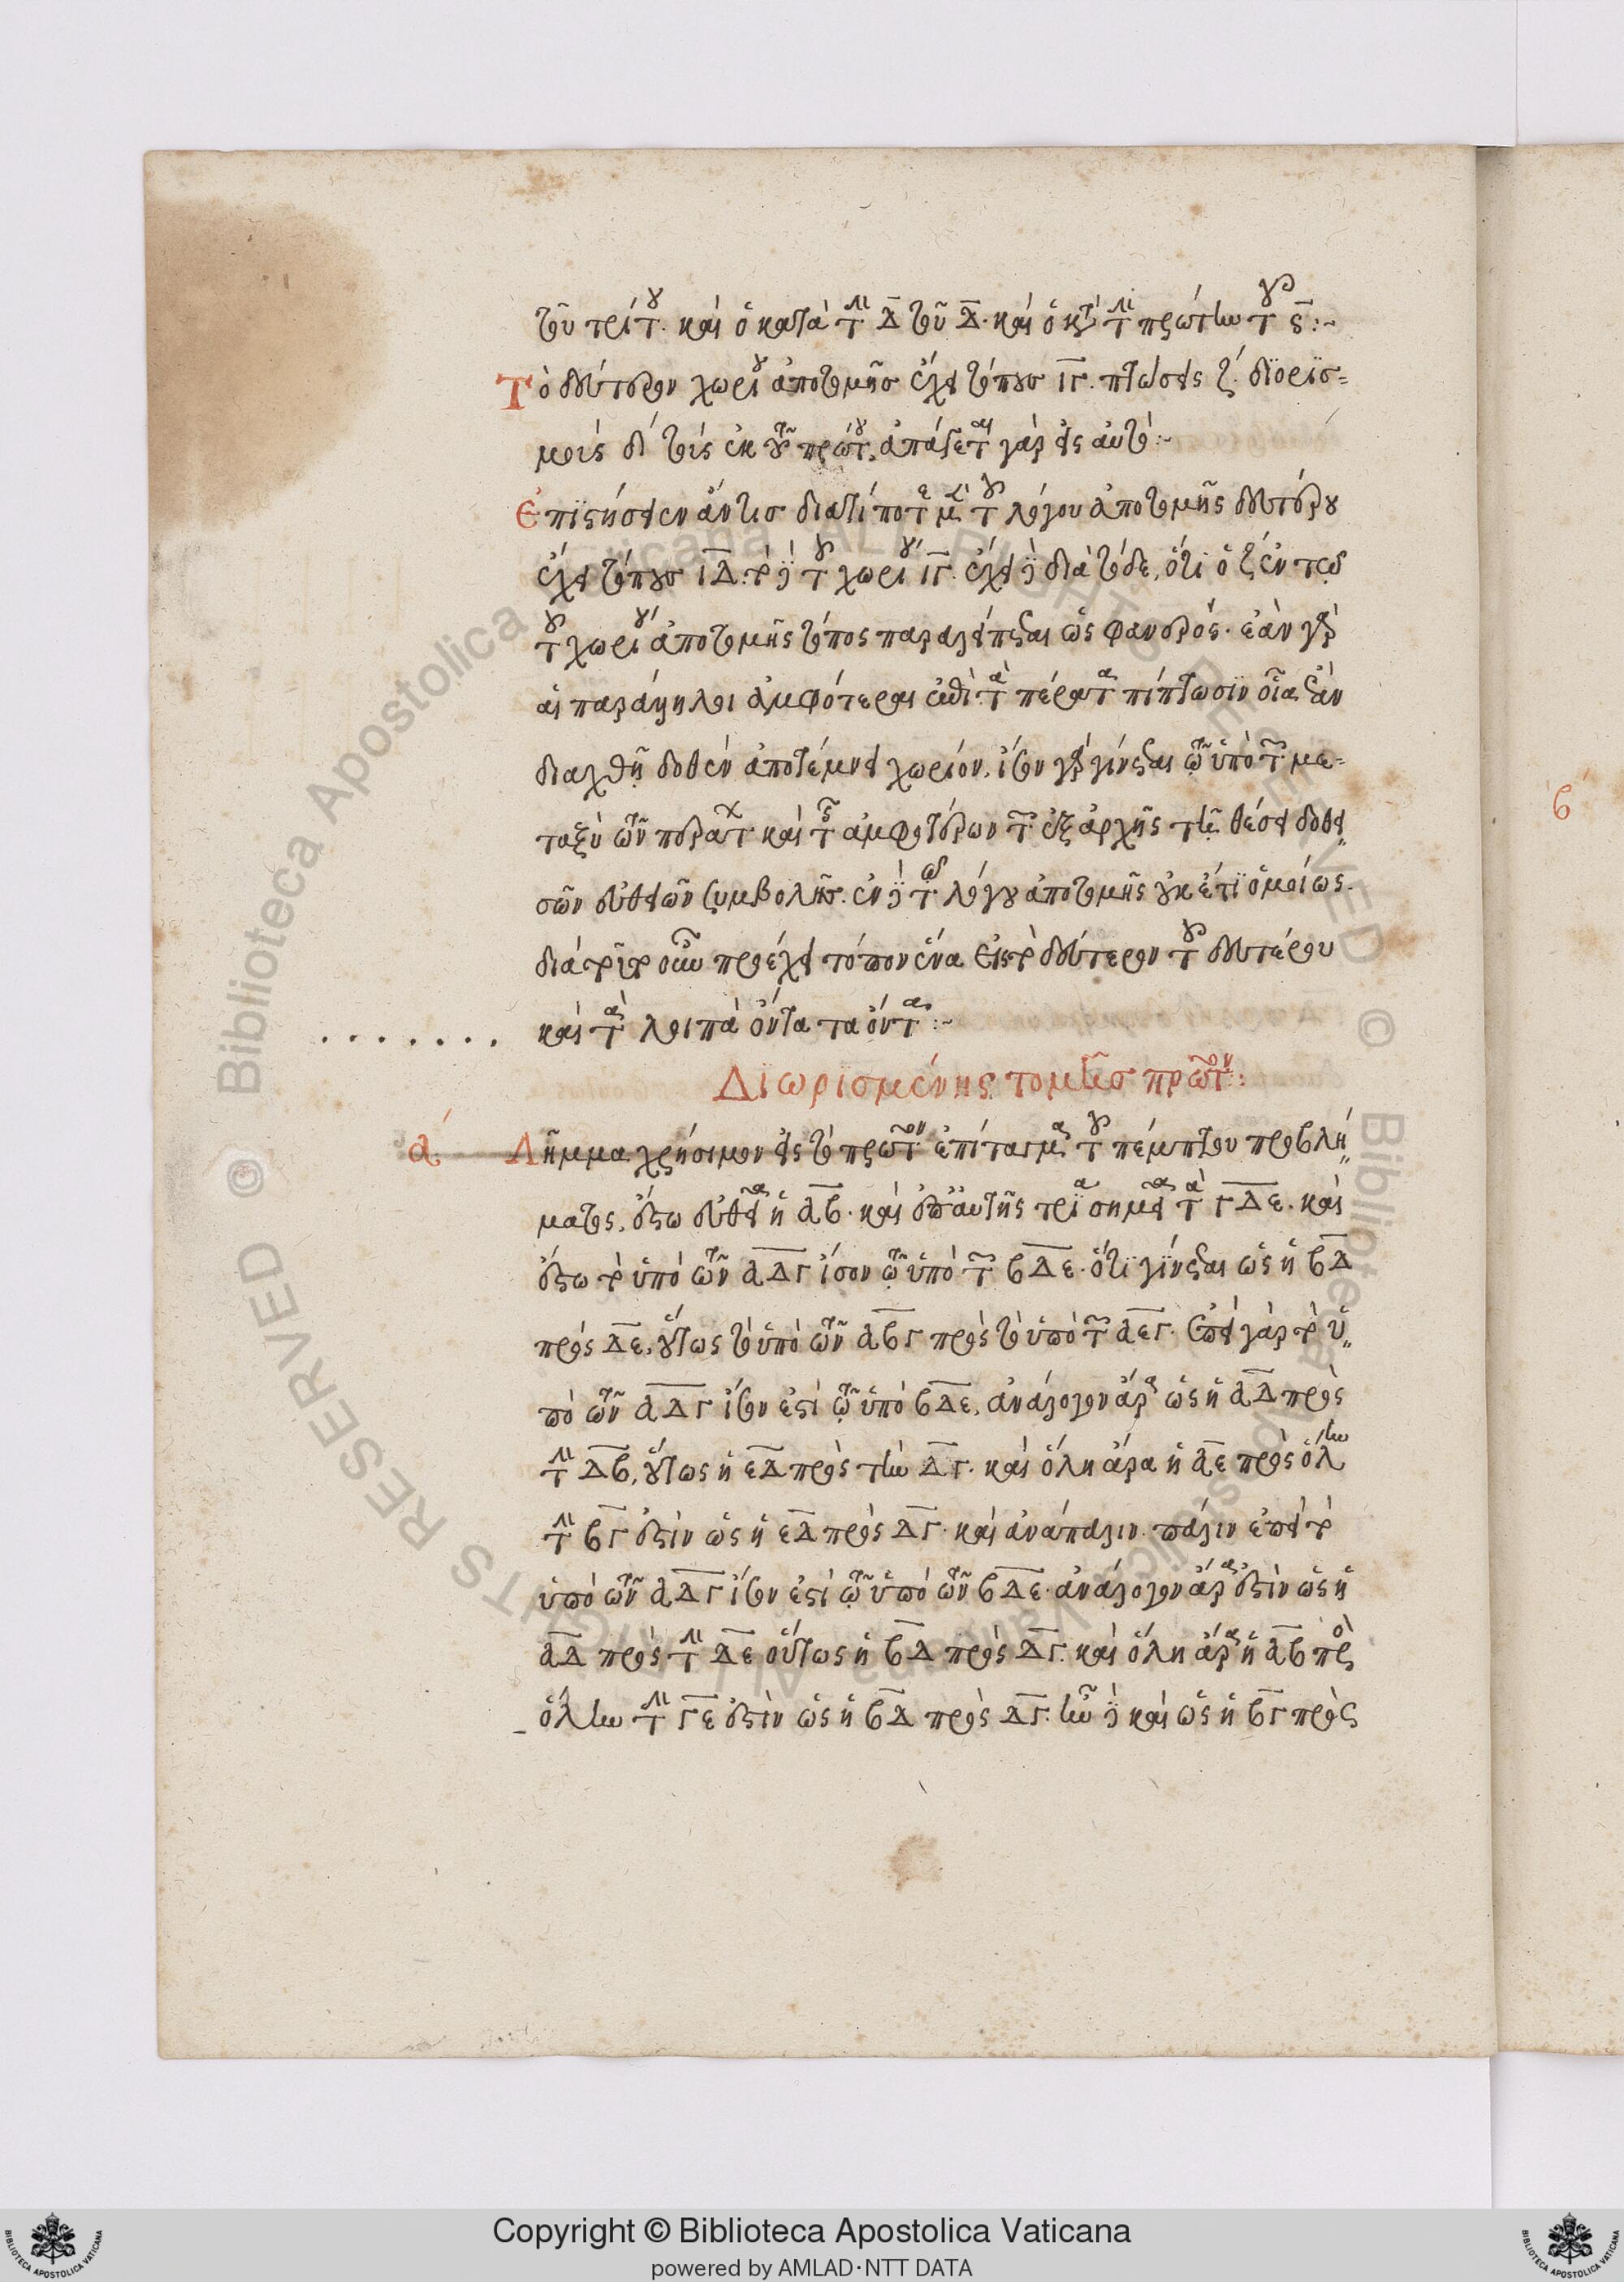 τοῦ τρίτου. καὶ ὁ κατὰ τὴν Δ τοῦ Δ. καὶ ὁ κατὰ τὴν πρώτην τοῦ ϛ:~
Τὸ δεύτερον χωρίου ἀποτομῆσ ἔχει τόπουσ ιγ. πτώσεις ζ. διορισ=
μοὺς δὲ τοὺς ἐκ τοῦ πρώτου. ἀπάγεται γὰρ εἰς αὐτό:~
Ἐπιστήσειεν ἄν τισ διατί ποτε μὲν τοῦ λόγου ἀποτομῆς δεύτερου
ἔχει τόπουσ ιΔ. τὸ δὲ τοῦ χωρίου ιγ. ἔχει δὲ διὰ τόδε, ὅτι ὁ ζ ἐν τῷ
τοῦ χωρίου ἀποτομῆς τόπος παραλείπεται ὡς φανερός. ἐὰν γὰρ
αἱ παράλληλοι ἀμφότεραι ἐπὶ τὰ πέρατα πίπτωσιν οἵα ἐὰν
διαχθῇ δοθὲν ἀποτέμνει χωρίον. ἴσον γὰρ γίνεται τῷ ὑπὸ τῶν με=
ταξὺ τῶν περάτων καὶ τῆς ἀμφοτέρων τῶν ἐξ ἀρχῆς τῇ θέσει δοθει
σῶν εὐθειῶν συμβολῆσ. ἐν δὲ τῷ λόγου ἀποτομῆς οὐκέτι ὁμοίως.
διὰ τοῦτο οὖν προέχει τόπον ἕνα εἰς τὸ δεύτερον τοῦ δευτέρου
καὶ τὰ λοιπὰ ὄντα τα ὄντα:~
Διωρισμένης τομῆσ πρῶτον:
α Λῆμμα χρήσιμον εἰς τὸ πρῶτον ἐπίταγμα τοῦ πέμπτου προβλή
ματος. ἔστω εὐθεῖα ἡ ΑΒ. καὶ ἐπ' αὐτῆς τρία σημεῖα τὰ ΓΔΕ. καὶ
ἔστω τὸ ὑπὸ τῶν ΑΔΓ ἴσον τῷ ὑπὸ τῶν ΒΔΕ. ὅτι γίνεται ὡς ἡ ΒΔ
πρὸς ΔΕ, οὕτως τὸ ὑπὸ τῶν ΑΒΓ πρὸς τὸ ὑπὸ τῶν ΑΕΓ. ἐπεὶ γὰρ τὸ ὑ
πὸ τῶν ΑΔΓ ἴσον ἐστὶ τῷ ὑπὸ ΒΔΕ, ἀνάλογον ἄρα ὡς ἡ ΑΔ πρὸς
τὴν ΔΒ, οὕτως ἡ ΕΔ πρὸς τὴν ΔΓ. καὶ ὅλη ἄρα ἡ ΑΕ πρὸς ὅλην
τὴν ΒΓ ἐστὶν ὡς ἡ ΕΔ πρὸς ΔΓ. καὶ ἀνάπαλιν. πάλιν ἐπεὶ τὸ
ὑπὸ τῶν ΑΔΓ ἴσον ἐστὶ τῷ ὑπὸ τῶν ΒΔΕ. ἀνάλογον ἄρα ἐστὶν ὡς ἡ
ΑΔ πρὸς τὴν ΔΕ οὕτως ἡ ΒΔ πρὸς ΔΓ. καὶ ὅλη ἄρα ἡ ΑΒ πρὸς
ὅλην τὴν ΓΕ ἐστὶν ὡς ἡ ΒΔ πρὸς ΔΓ. ἦν δὲ καὶ ὡς ἡ ΒΓ πρὸς
β
Biblioteca Apostolica Vaticana ALL RIGHTS RESERVED ©
Copyright © Biblioteca Apostolica Vaticana
powered by AMLAD·NTT DATA
BIBLIOTECA APOSTOLICA VATICANA
BIBLIOTECA APOSTOLICA VATICANA